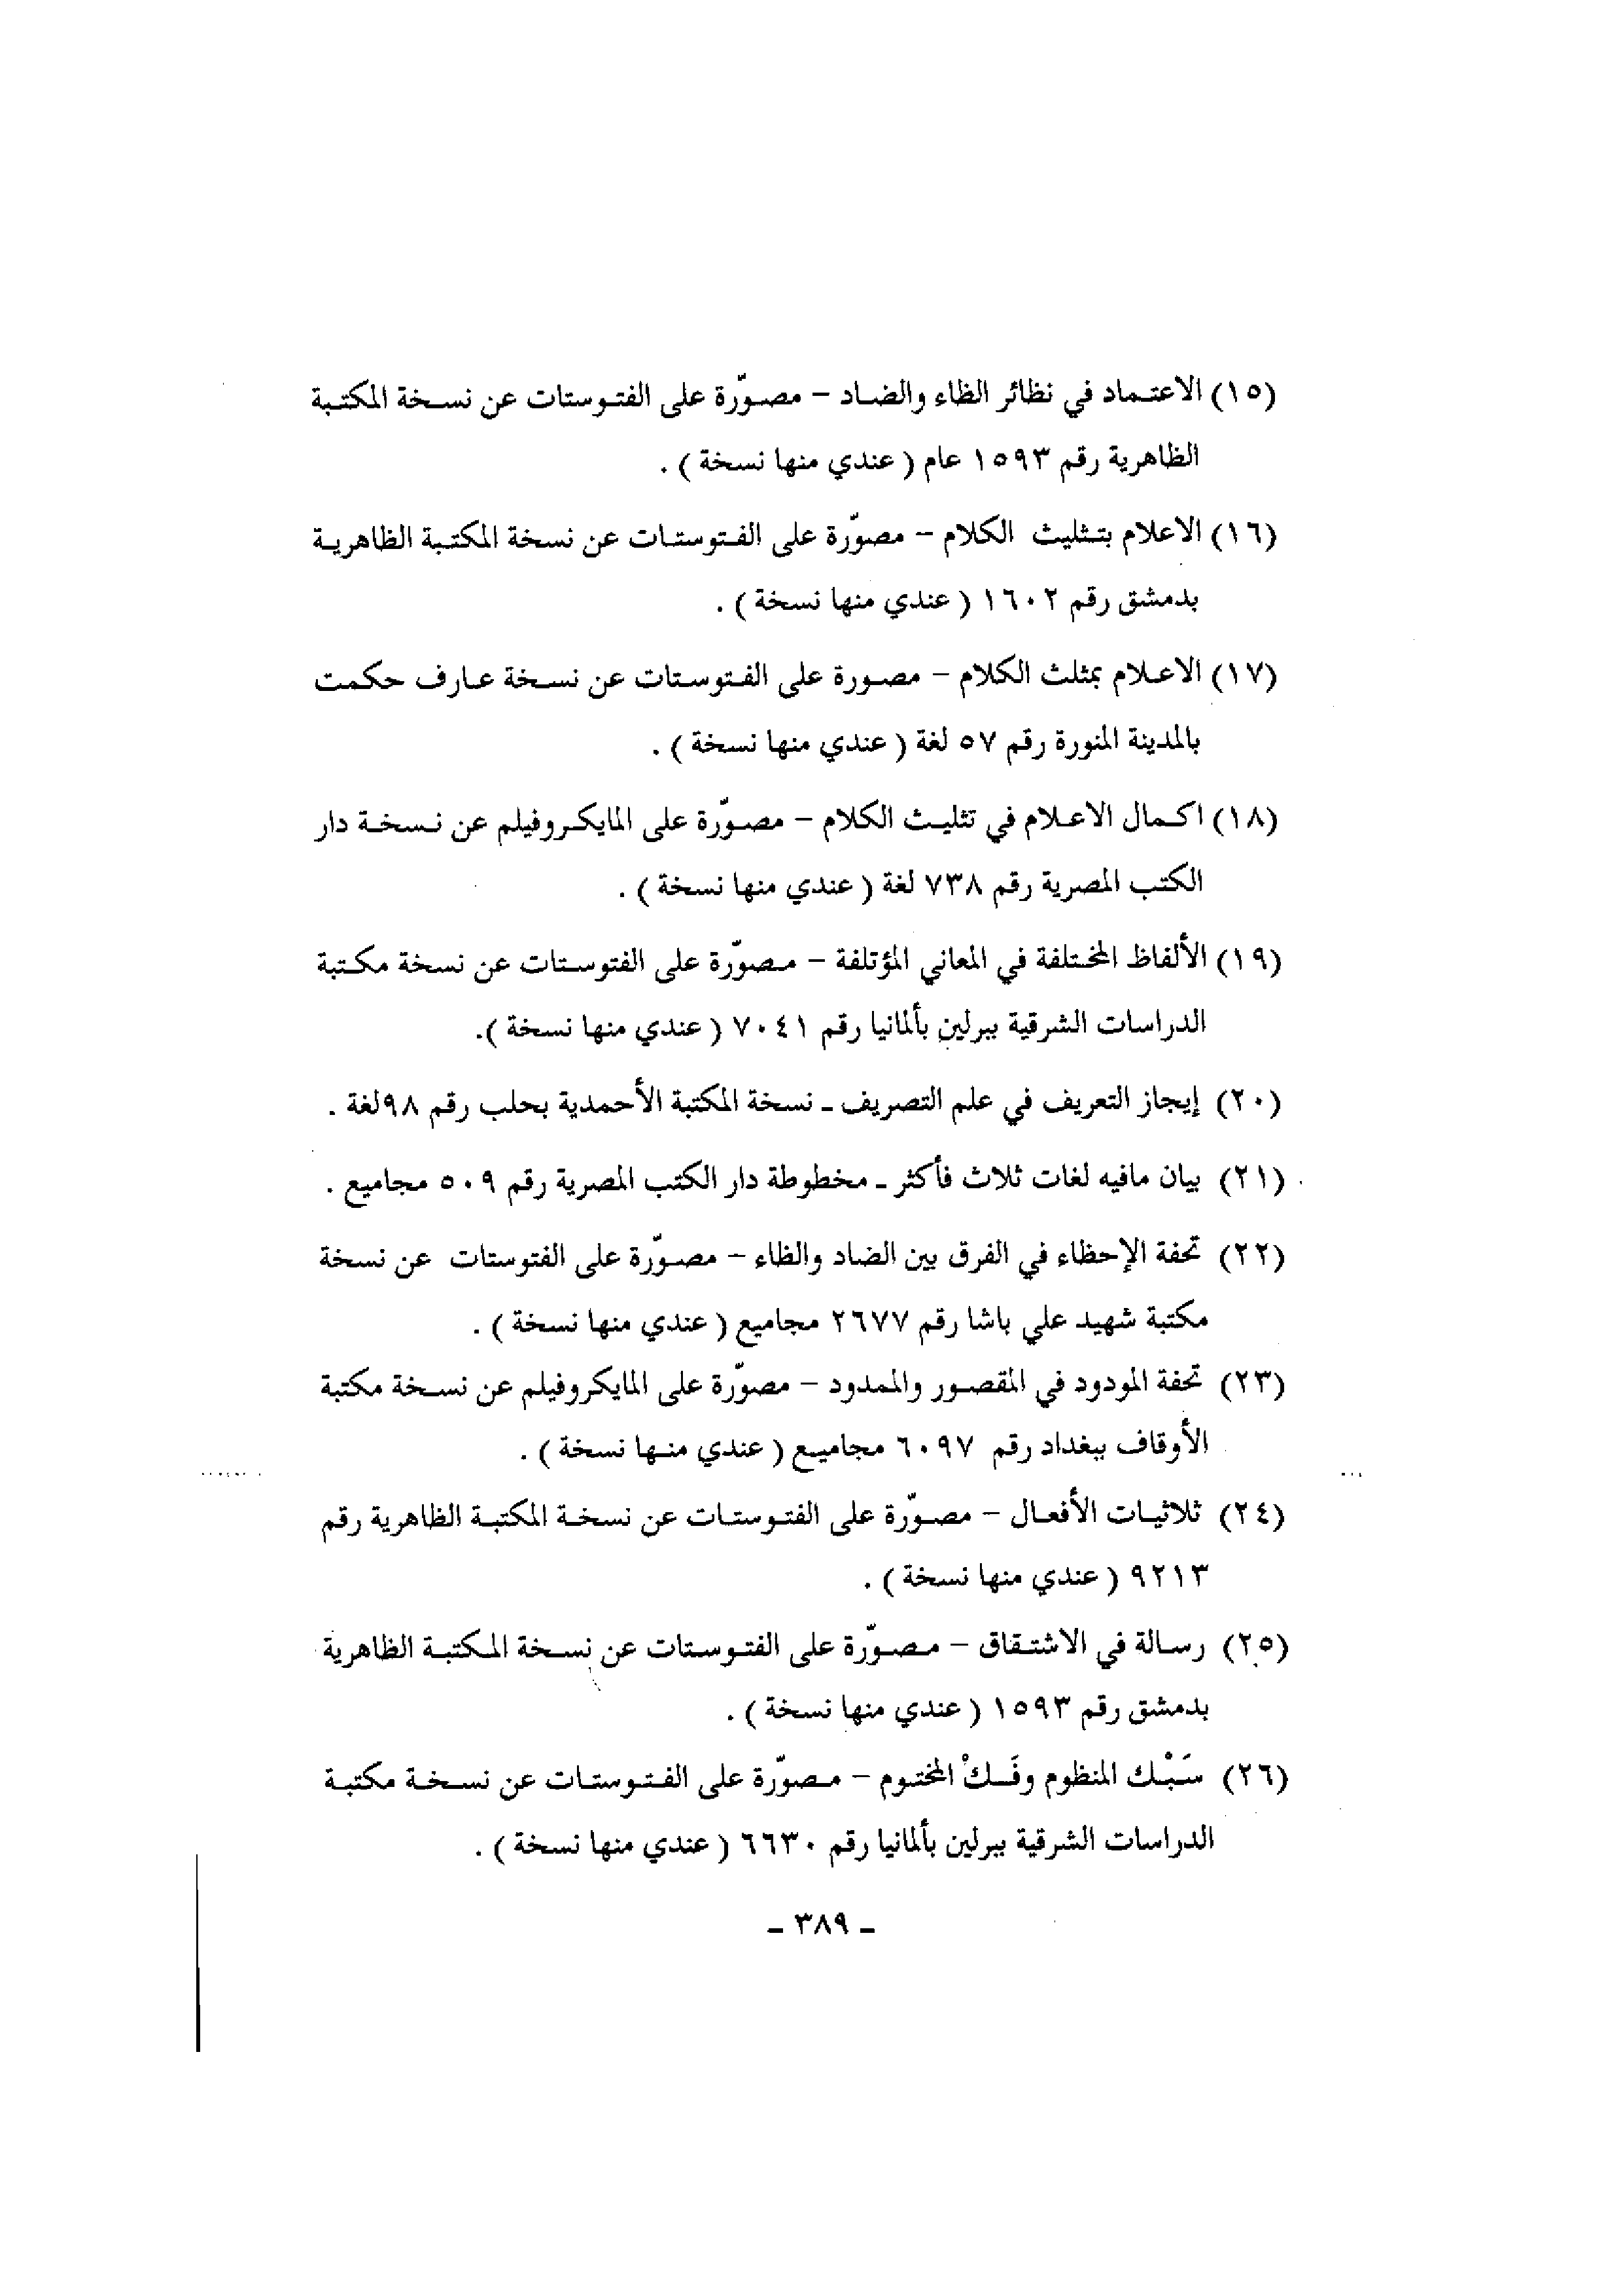 (١٥) الاعتماد في نظائر الظاء والضاد – مصوّرة على الفتوستات عن نسخة المكتبة
الظاهرية رقم ١٥٩٣ عام ( عندي منها نسخة ) .
(١٦) الاعلام بتثليث الكلام – مصوّرة على الفتوستات عن نسخة المكتبة الظاهرية
بدمشق رقم ١٦٠٢ ( عندي منها نسخة ) .
(١٧) الاعلام بمثلث الكلام – مصورة على الفتوستات عن نسخة عارف حكمت
بالمدينة المنورة رقم ٥٧ لغة ( عندي منها نسخة ) .
(١٨) اكمال الاعلام في تثليث الكلام – مصوّرة على المايكروفيلم عن نسخة دار
الكتب المصرية رقم ٧٣٨ لغة ( عندي منها نسخة ) .
(١٩) الألفاظ المختلفة في المعاني المؤتلفة – مصوّرة على الفتوستات عن نسخة مكتبة
الدراسات الشرقية ببرلين بألمانيا رقم ٧٠٤١ ( عندي منها نسخة ).
(٢٠) إيجاز التعريف في علم التصريف ـ نسخة المكتبة الأحمدية بحلب رقم ٩٨لغة .
(٢١) بيان مافيه لغات ثلاث فأكثر ـ مخطوطة دار الكتب المصرية رقم ٥٠٩ مجاميع .
(٢٢) تحفة الإحظاء في الفرق بين الضاد والظاء – مصوّرة على الفتوستات عن نسخة
مكتبة شهيد علي باشا رقم ٢٦٧٧ مجاميع ( عندي منها نسخة ) .
(٢٣) تحفة المودود في المقصور والممدود – مصوّرة على المايكروفيلم عن نسخة مكتبة
الأوقاف ببغداد رقم ٦٠٩٧ مجاميع ( عندي منها نسخة ) .
(٢٤) ثلاثيات الأفعال – مصوّرة على الفتوستات عن نسخة المكتبة الظاهرية رقم
٩٢١٣ ( عندي منها نسخة ) .
(٢٥) رسالة في الاشتقاق – مصوّرة على الفتوستات عن نسخة المكتبة الظاهرية
بدمشق رقم ١٥٩٣ ( عندي منها نسخة ) .
(٢٦) سَبْك المنظوم وفَكْ المختوم – مصوّرة على الفتوستات عن نسخة مكتبة
الدراسات الشرقية ببرلين بألمانيا رقم ٦٦٣٠ ( عندي منها نسخة ) .
ـ ٣٨٩ ـ